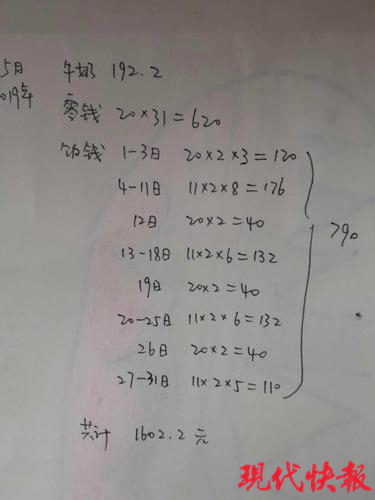 5月 牛奶 192.2
019年 零钱 20×31=620
饭钱 1-3日 20×2×3=120
4-11日 11×2×8=176
12日 20×2=40
790
13-18日 11×2×6=132
19日 20×2=40
20-25日 11×2×6=132
26日 20×2=40
27-31日 11×2×5=110
共计 1602.2元
现代快報